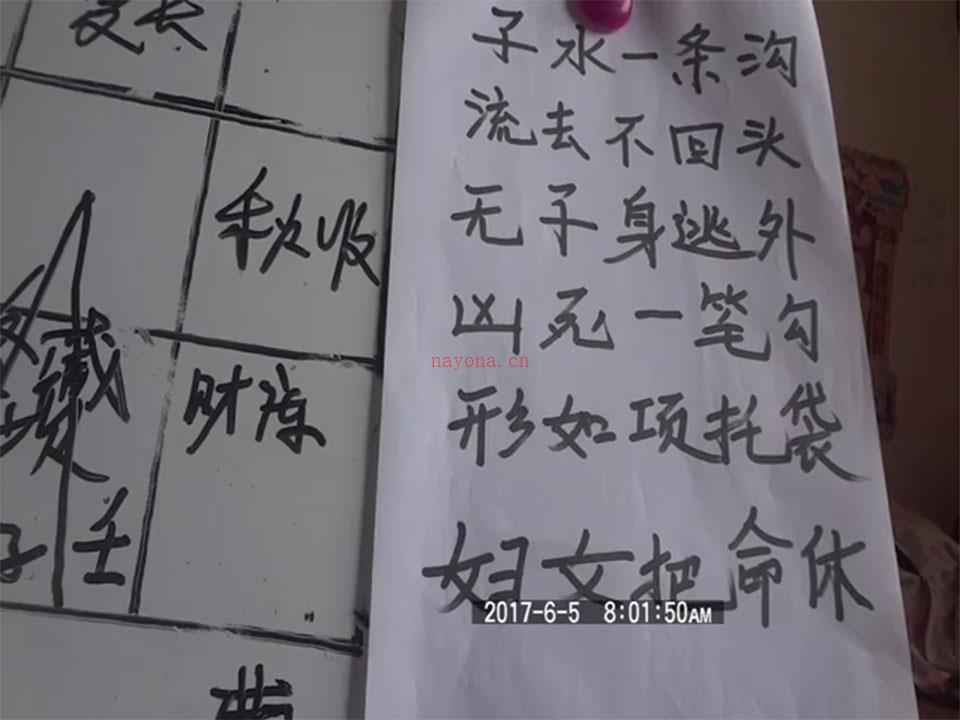 子水一条沟
流去不回头
无子身逃外
凶死一笔勾
形如项托袋
妇女把命休
秋收
财源
子 壬
nayona.cn
2017-6-5 8:01:50AM